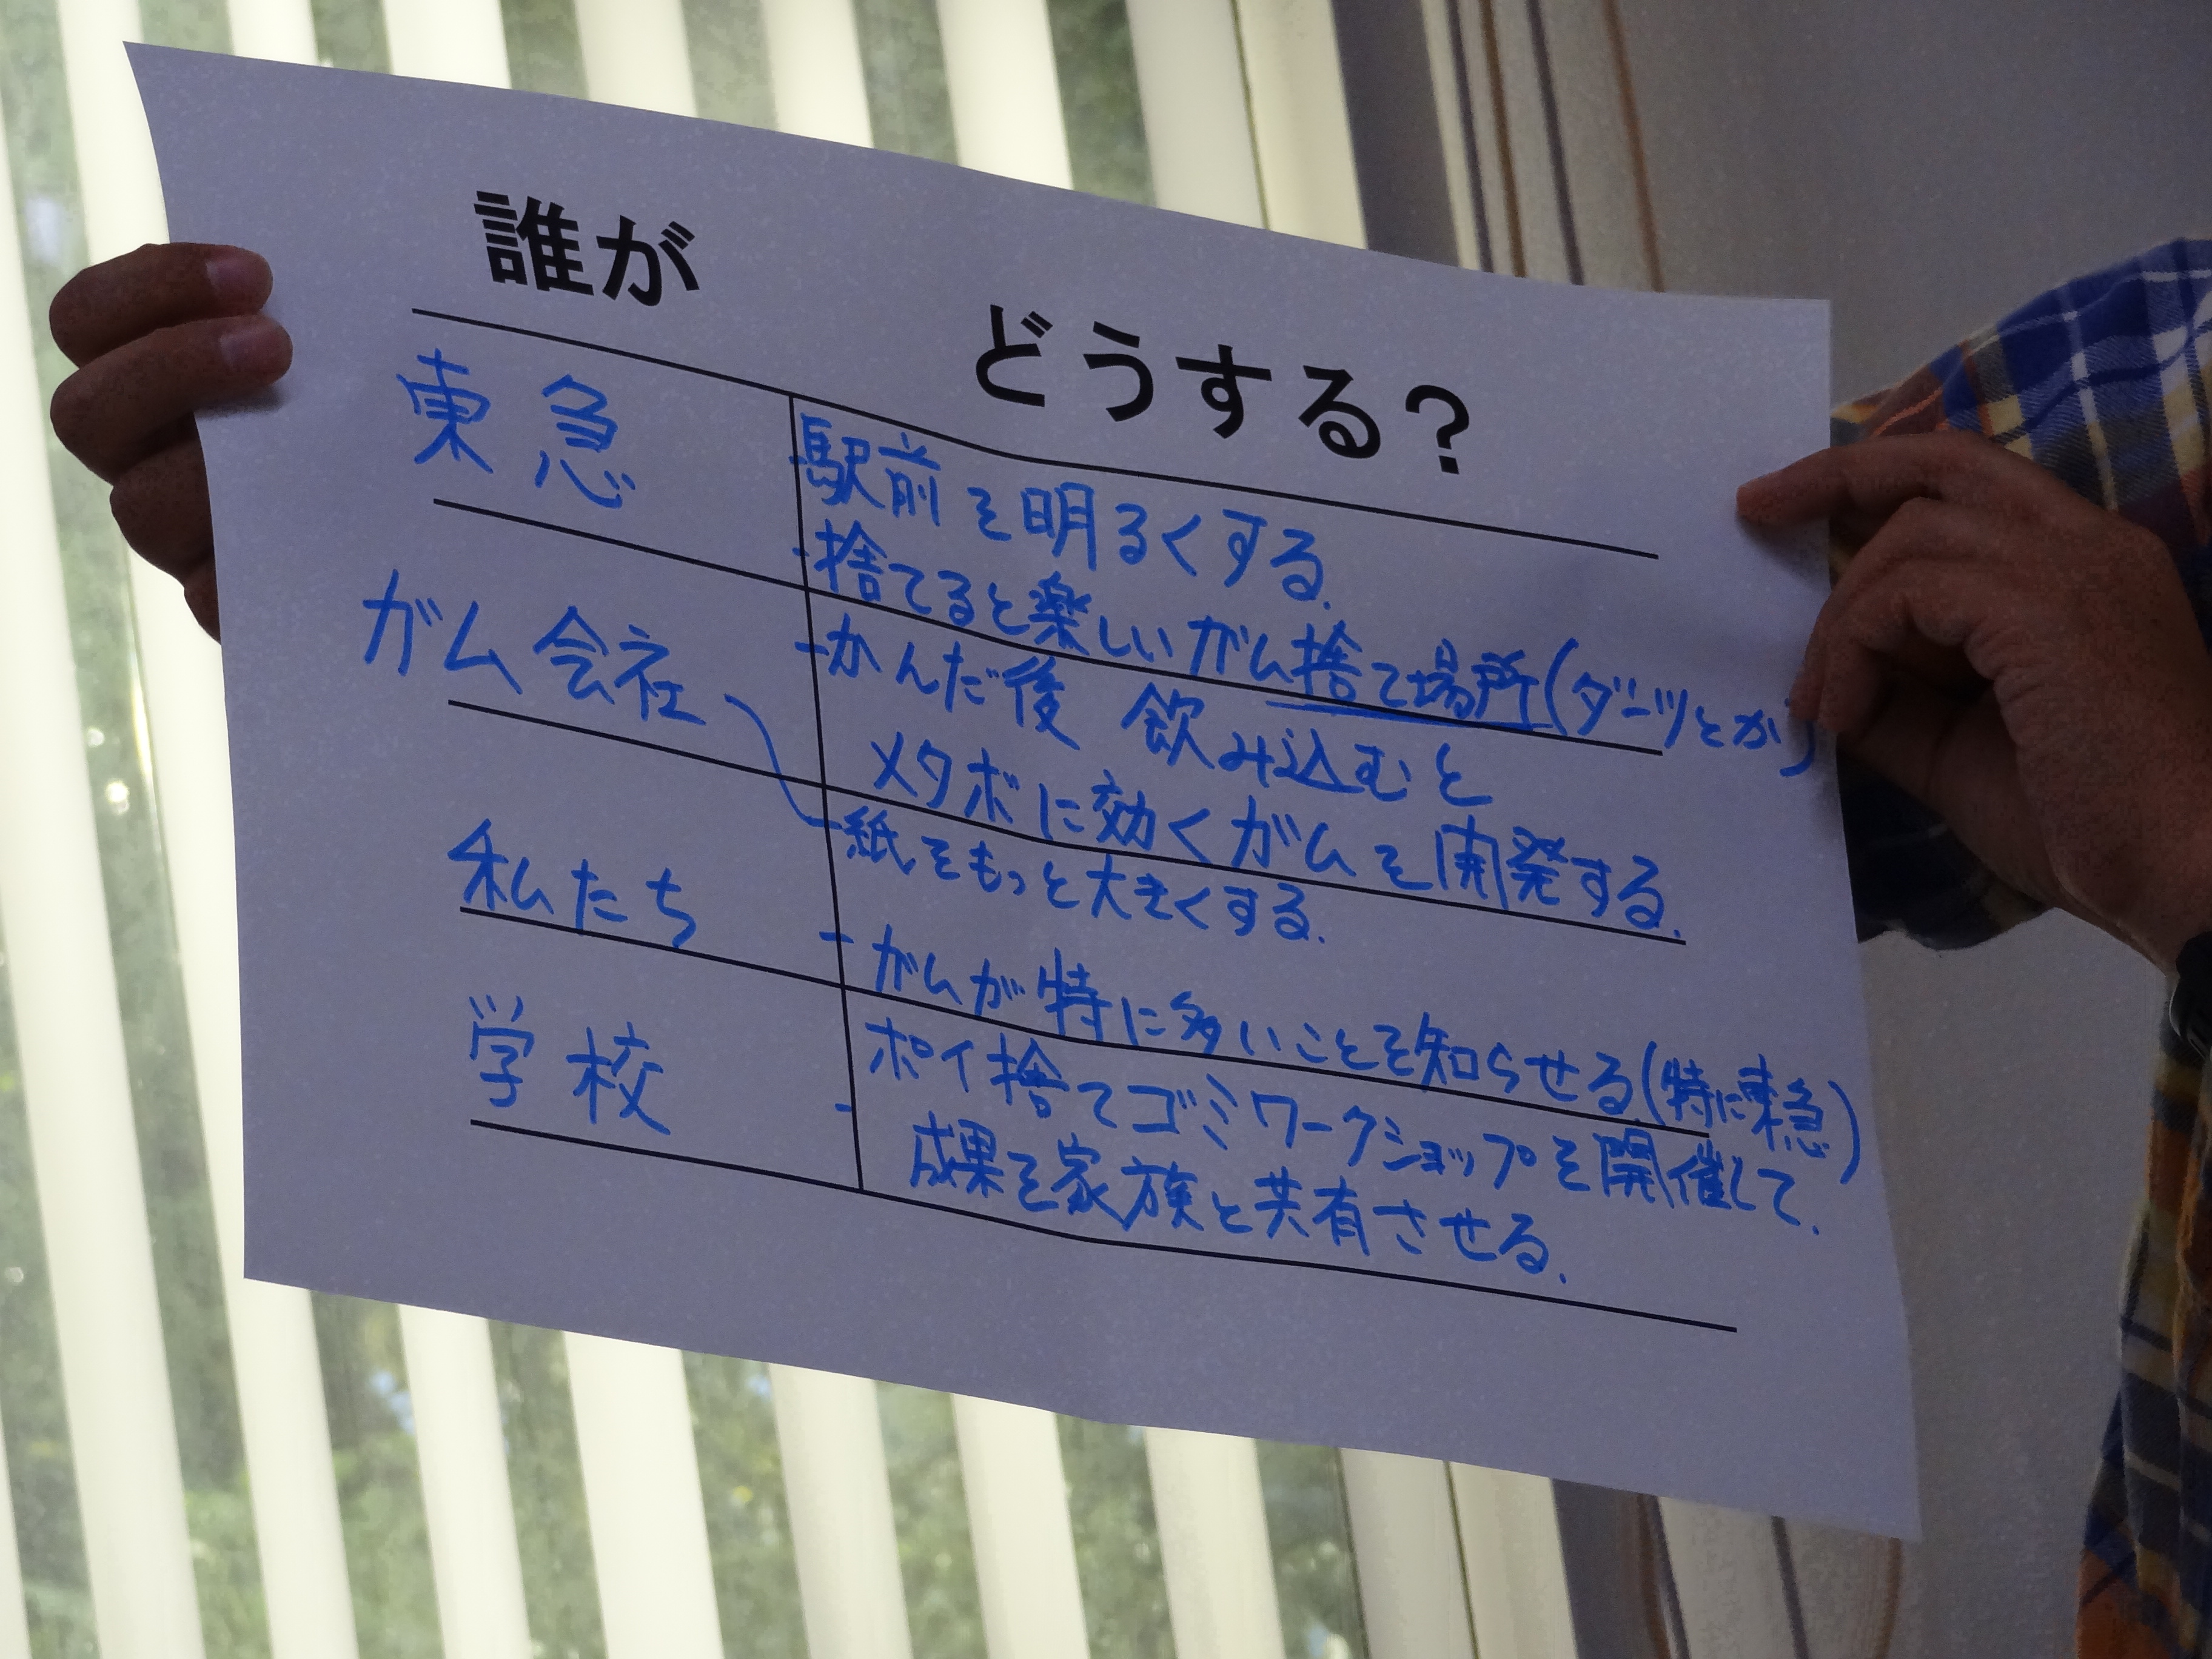 誰が
どうする?
東急
-駅前を明るくする.
-捨てると楽しいガム捨て場所(ダーツとか)
ガム会社
-かんだ後 飲み込むと
メタボに効くガムを開発する.
-紙をもっと大きくする.
私たち
-ガムが特に多いことを知らせる(特に東急)
学校
-ポイ捨てゴミワークショップを開催して.
成果を家族と共有させる.